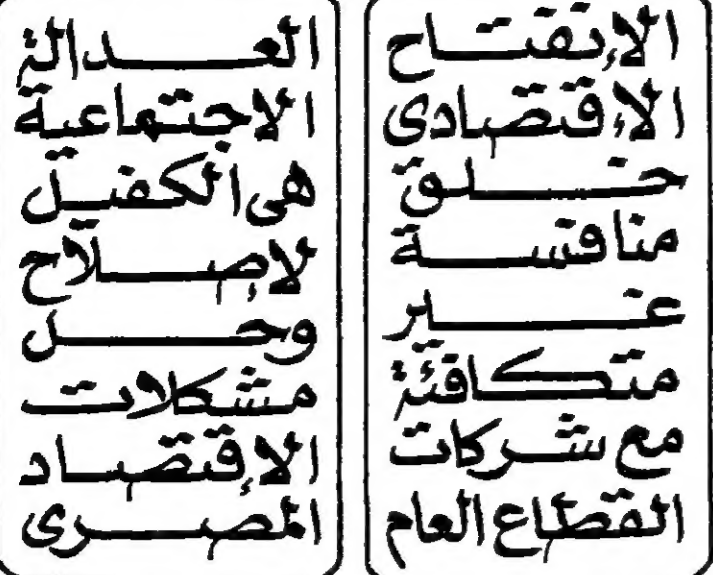 الإنفتاح
الإقتصادى
خلق
منافسة
غير
متكافئة
مع شركات
القطاع العام
العدالة
الاجتماعية
هى الكفيل
لإصلاح
وحل
مشكلات
الإقتصاد
المصرى